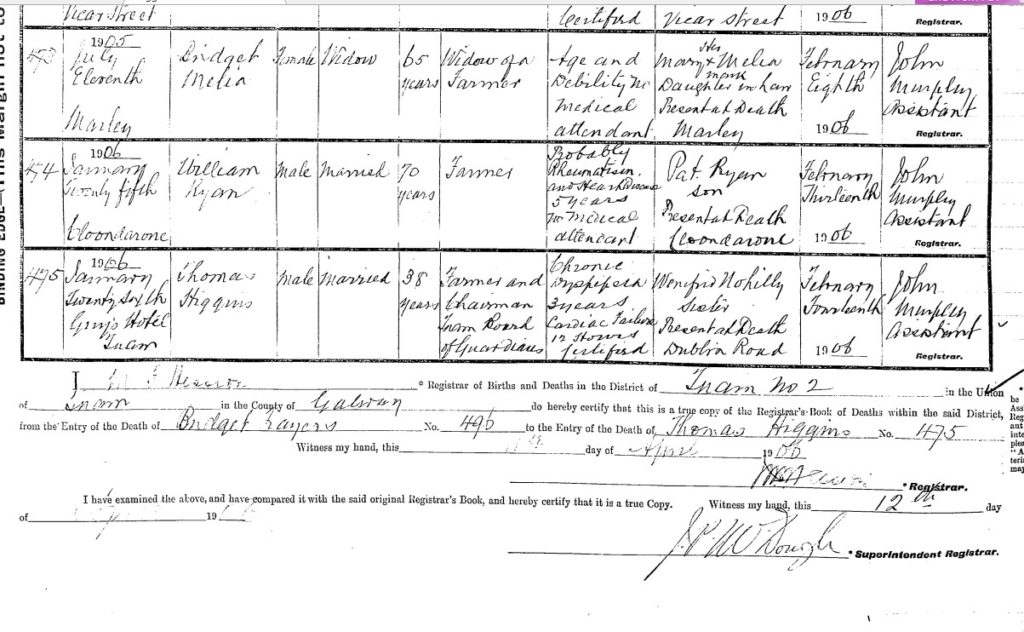 Vicar Street Certified Vicar Street 1906 Registrar.
473 1905 July Eleventh Marley
Bridget Melia
Female Widow 65 years
Widow of a Farmer
Age and Debility No Medical attendant
Mary X Melia Her mark Daughter in law Present at Death Marley
February Eighth 1906
John Murphy Assistant Registrar.
474 1906 January Twenty fifth Cloondarone
William Ryan
Male Married 70 years
Farmer
Probably Rheumatism and Heart Disease 5 years No Medical attendant
Pat Ryan son Present at Death Cloondarone
February Thirteenth 1906
John Murphy Assistant Registrar.
475 1906 January Twenty Sixth Guy's Hotel Tuam
Thomas Higgins
Male Married 38 years
Farmer and Chairman Tuam Board of Guardians
Chronic Dyspepsia 3 years Cardiac Failure 12 Hours Certified
Wenifrid Nohilly Sister Present at Death Dublin Road
February Fourteenth 1906
John Murphy Assistant Registrar.
I Registrar of Births and Deaths in the District of Tuam No 2 in the Union
of Tuam in the County of Galway do hereby certify that this is a true copy of the Registrar's Book of Deaths within the said District,
from the Entry of the Death of Bridget No. 496 to the Entry of the Death of Thomas Higgins No. 475
Witness my hand, this day of April 1906
Registrar.
I have examined the above, and have compared it with the said original Registrar's Book, and hereby certify that it is a true Copy. Witness my hand, this 12th day
of 19
Superintendent Registrar.